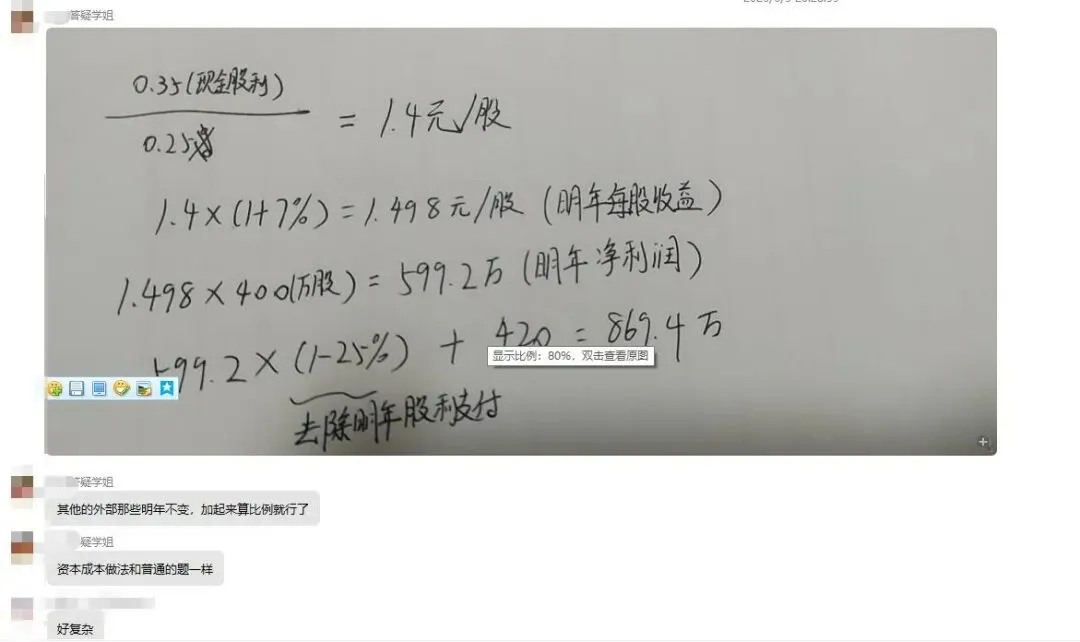 答疑学姐
0.35(现金股利)
0.25
= 1.4元/股
1.4×(1+7%)=1.498元/股 (明年每股收益)
1.498×400(万股)=599.2万(明年净利润)
599.2×(1-25%) + 420 = 869.4万
显示比例：80%，双击查看原图
去除明年股利支付
答疑学姐
其他的外部那些明年不变，加起来算比例就行了
疑学姐
资本成本做法和普通的题一样
好复杂